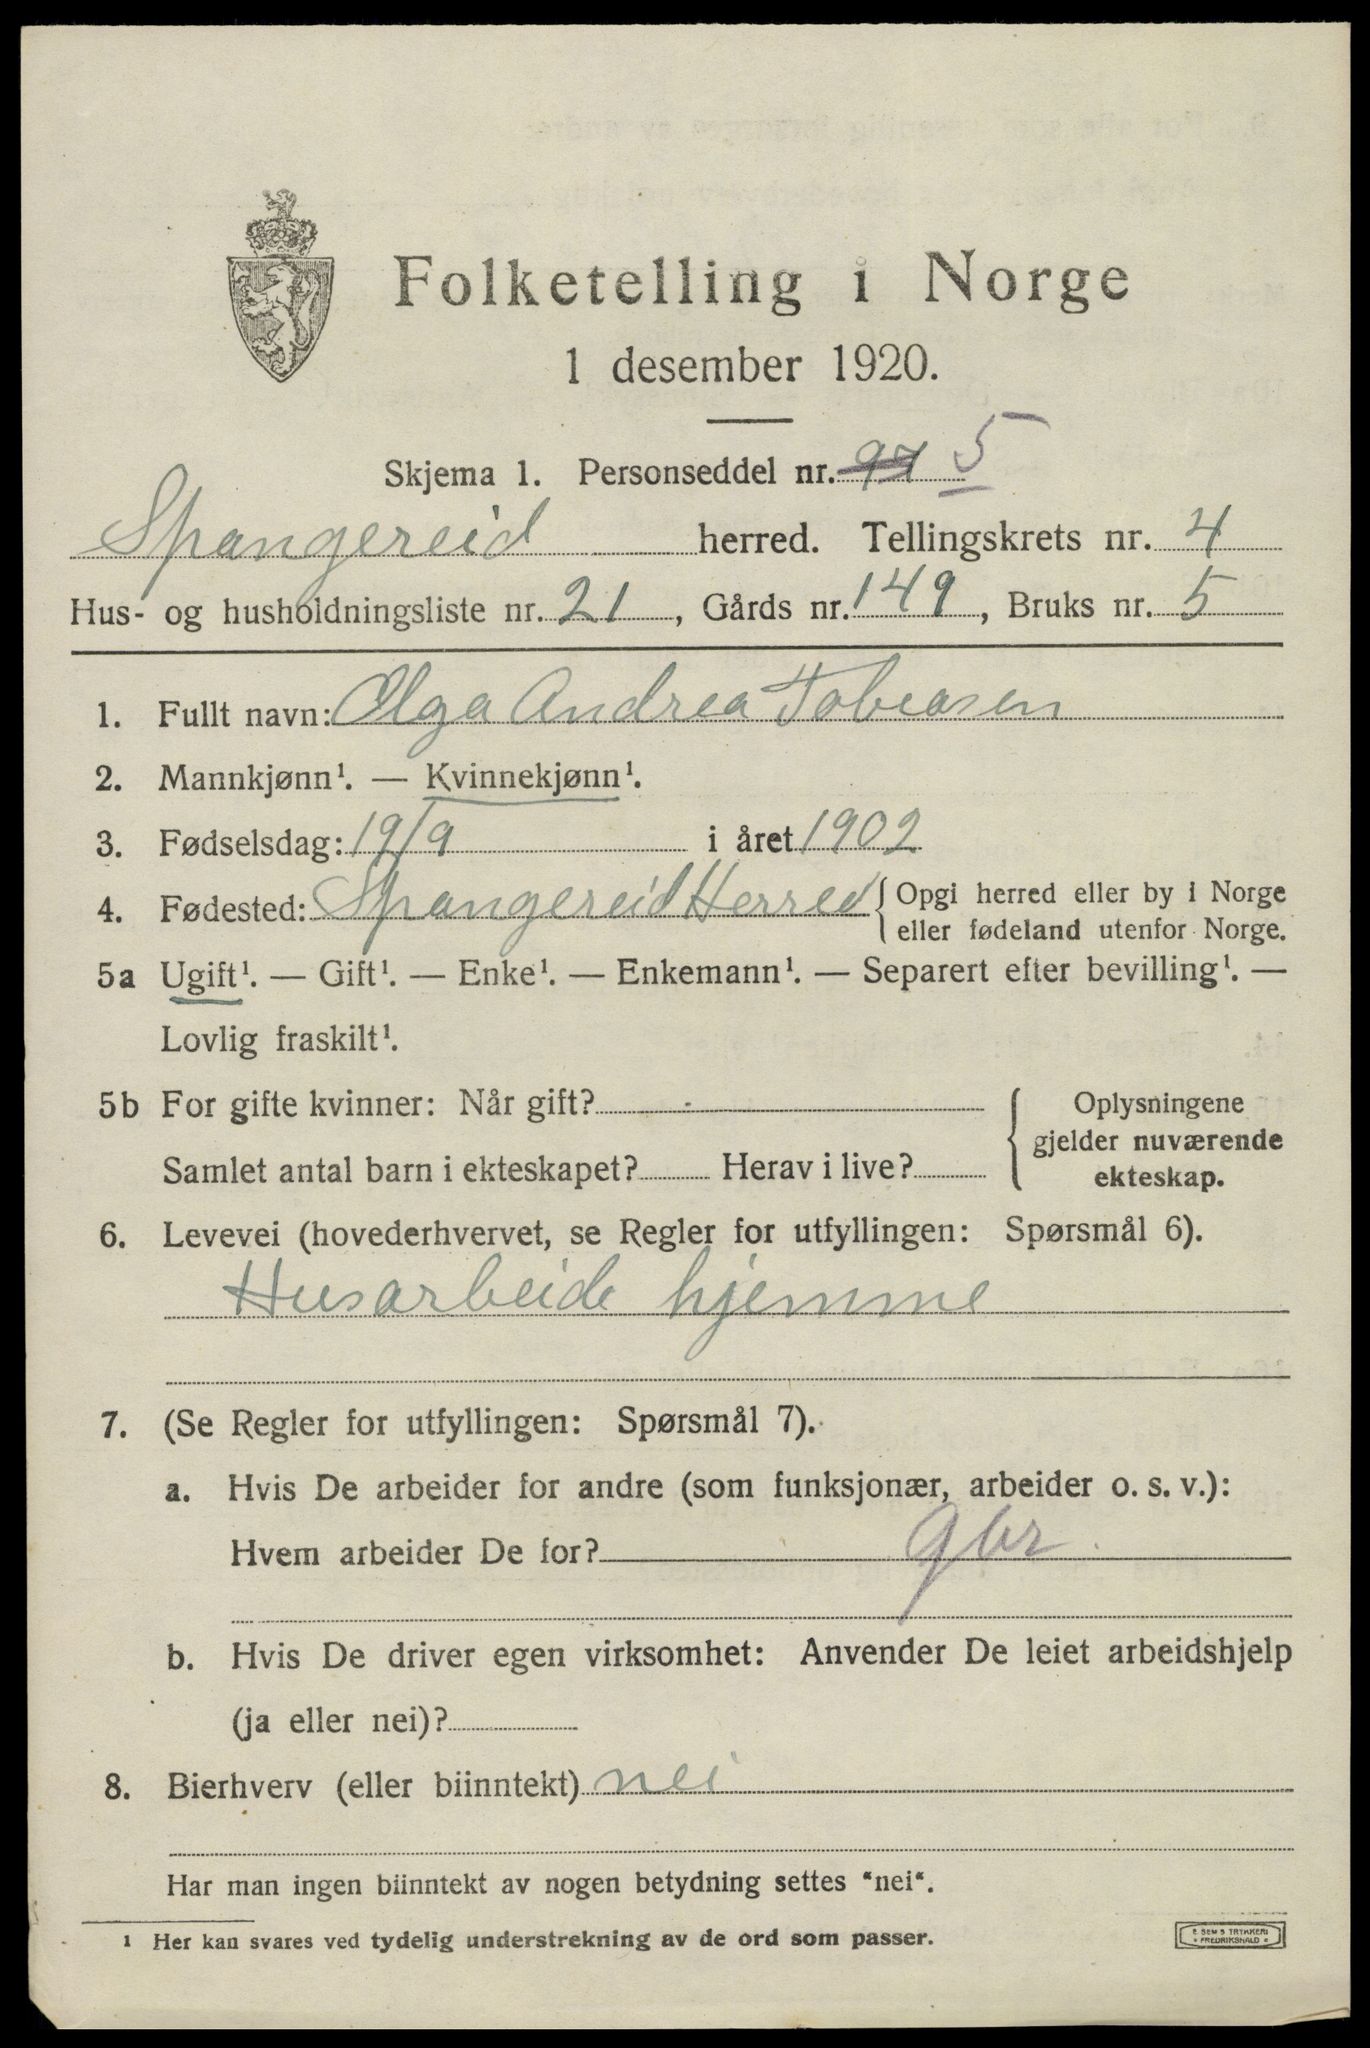 Folketelling i Norge
1 desember 1920.
Skjema 1. Personseddel nr. 97 5
Spangereid herred. Tellingskrets nr. 4
Hus- og husholdningsliste nr. 21, Gårds nr. 149, Bruks nr. 5
1. Fullt navn: Olga Andrea Tobiasen
2. Mannkjønn¹. — Kvinnekjønn¹.
3. Fødselsdag: 19/9 i året 1902
4. Fødested: Spangereid Herred { Opgi herred eller by i Norge
eller fødeland utenfor Norge.
5a Ugift¹. — Gift¹. — Enke¹. — Enkemann¹. — Separert efter bevilling¹. —
Lovlig fraskilt¹.
5b For gifte kvinner: Når gift? { Oplysningene
gjelder nuværende
Samlet antal barn i ekteskapet? Herav i live?
ekteskap.
6. Levevei (hovederhvervet, se Regler for utfyllingen: Spørsmål 6).
Husarbeide hjemme
7. (Se Regler for utfyllingen: Spørsmål 7).
a. Hvis De arbeider for andre (som funksjonær, arbeider o. s. v.):
Hvem arbeider De for? gbr.
b. Hvis De driver egen virksomhet: Anvender De leiet arbeidshjelp
(ja eller nei)?
8. Bierhverv (eller biinntekt) nei
Har man ingen biinntekt av nogen betydning settes "nei".
¹ Her kan svares ved tydelig understrekning av de ord som passer.
E. SEM'S TRYKKERI
FREDRIKSHALD